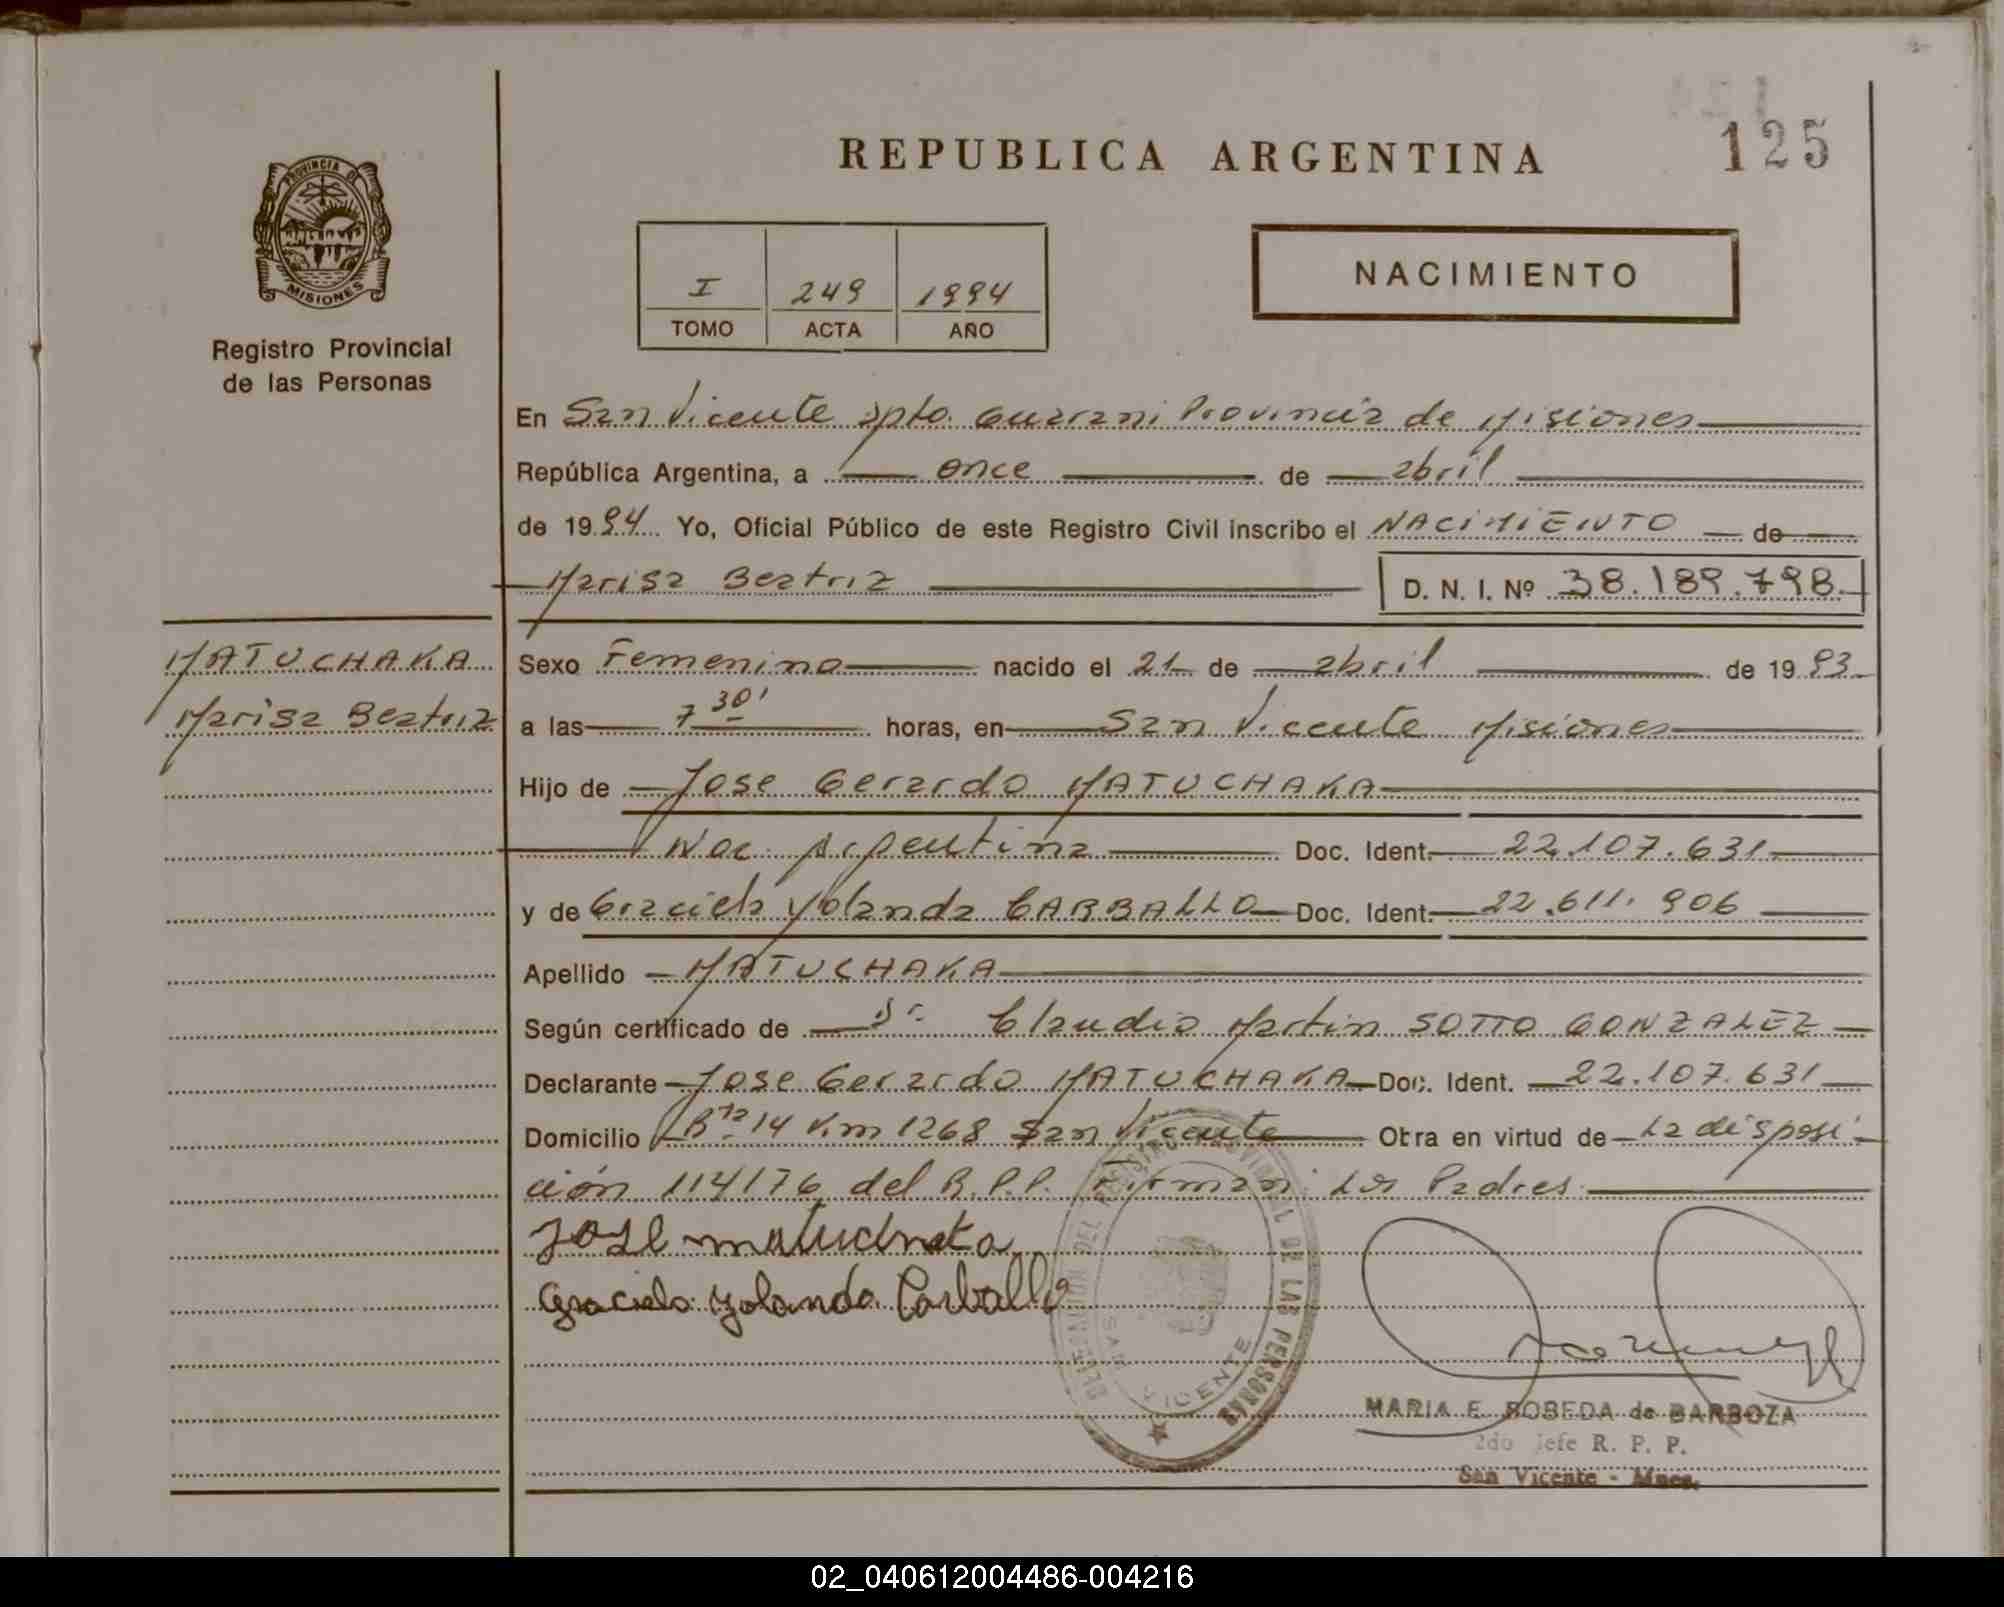 125
REPUBLICA ARGENTINA
PROVINCIA DE
MISIONES
Registro Provincial
de las Personas
I 249 1994
TOMO ACTA AÑO
NACIMIENTO
En San Vicente Dpto. Guarani Provincia de Misiones
República Argentina, a once de abril
de 1994 Yo, Oficial Público de este Registro Civil inscribo el NACIMIENTO de
Marisa Beatriz D. N. I. Nº 38.189.798.
MATUCHAKA
Marisa Beatriz
Sexo Femenino nacido el 21 de abril de 1993
a las 7 30' horas, en San Vicente Misiones
Hijo de Jose Gerardo MATUCHAKA
Nac. Argentina Doc. Ident. 22.107.631
y de Graciela Yolanda CARBALLO Doc. Ident. 22.611.906
Apellido MATUCHAKA
Según certificado de Dr. Claudio Martin SOTTO GONZALEZ
Declarante Jose Gerardo MATUCHAKA Doc. Ident. 22.107.631
Domicilio Rta. 14 Km 1268 San Vicente Obra en virtud de La disposi
ción 114/76 del R.P.P. Firman: Los Padres.
Jose
Graciela Yolanda Carballo
DELEGACION DEL REGISTRO PROVINCIAL DE LAS PERSONAS
SAN VICENTE
MARIA E. BOBEDA de BARBOZA
2do Jefe R. P. P.
San Vicente - Mnes.
02_040612004486-004216